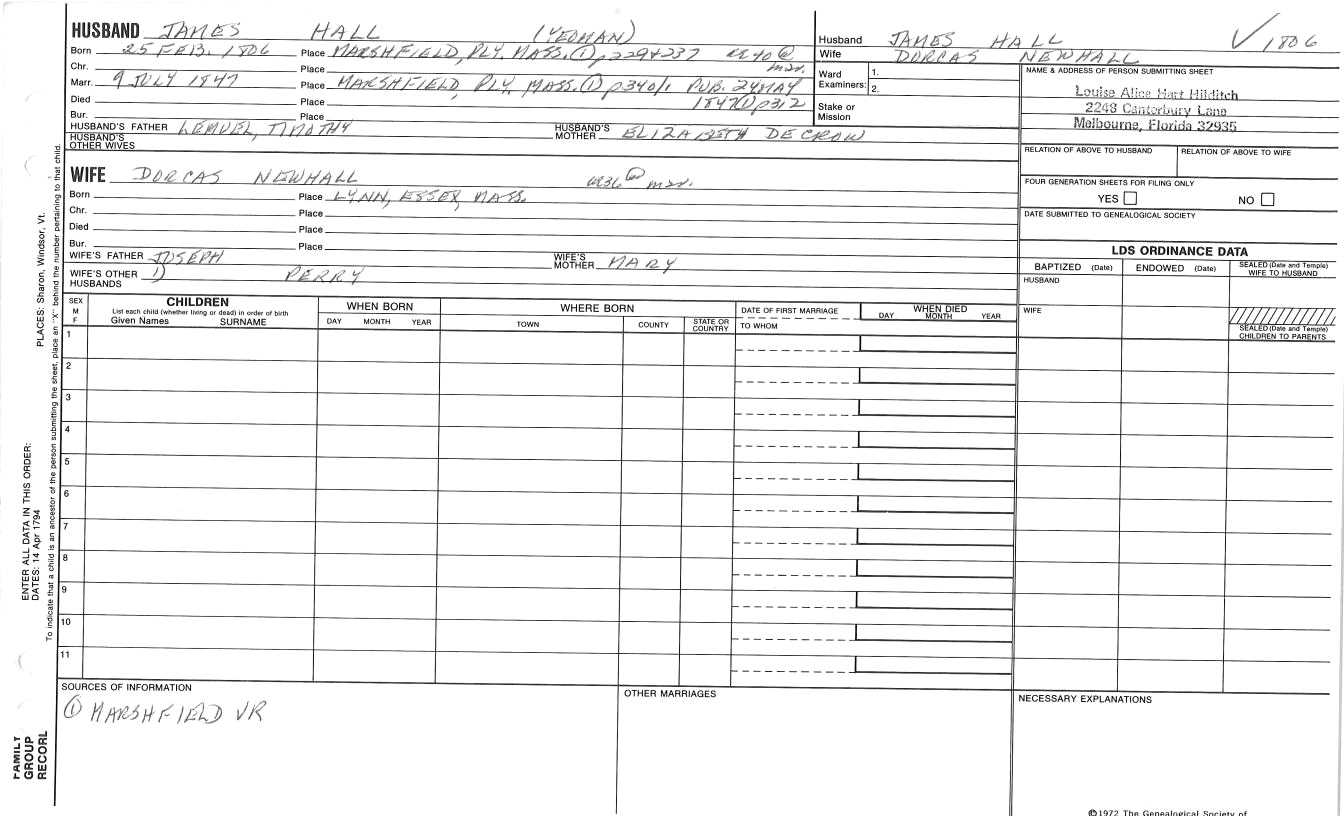 HUSBAND JAMES HALL (YEOMAN)
Born 25 FEB. 1806 Place MARSHFIELD, PLY. MASS. ①, p229&237 ae 40 @ mar.
Chr. Place
Marr. 9 JULY 1847 Place MARSHFIELD, PLY, MASS. ① p340/1 PUB. 24 MAY 1847① p312
Died Place
Bur. Place
HUSBAND'S FATHER LEMUEL, TIMOTHY HUSBAND'S MOTHER ELIZABETH DECROW
HUSBAND'S OTHER WIVES
Husband JAMES HALL √ 1806
Wife DORCAS NEWHALL
Ward Examiners: 1.
2.
Stake or Mission
NAME & ADDRESS OF PERSON SUBMITTING SHEET
Louise Alice Hart Hilditch
2248 Canterbury Lane
Melbourne, Florida 32935
RELATION OF ABOVE TO HUSBAND RELATION OF ABOVE TO WIFE
FOUR GENERATION SHEETS FOR FILING ONLY
YES NO
DATE SUBMITTED TO GENEALOGICAL SOCIETY
WIFE DORCAS NEWHALL ae 36 @ mar.
Born Place LYNN, ESSEX, MASS.
Chr. Place
Died Place
Bur. Place
WIFE'S FATHER JOSEPH WIFE'S MOTHER MARY
WIFE'S OTHER HUSBANDS 1) PERRY
LDS ORDINANCE DATA
BAPTIZED (Date) ENDOWED (Date) SEALED (Date and Temple) WIFE TO HUSBAND
HUSBAND
WIFE
SEALED (Date and Temple) CHILDREN TO PARENTS
SEX M F
CHILDREN
List each child (whether living or dead) in order of birth
Given Names SURNAME
WHEN BORN
DAY MONTH YEAR
WHERE BORN
TOWN COUNTY STATE OR COUNTRY
DATE OF FIRST MARRIAGE
TO WHOM
WHEN DIED
DAY MONTH YEAR
1
2
3
4
5
6
7
8
9
10
11
SOURCES OF INFORMATION
① MARSHFIELD VR
OTHER MARRIAGES
NECESSARY EXPLANATIONS
©1972 The Genealogical Society of
PLACES: Sharon, Windsor, Vt.
To indicate that a child is an ancestor of the person submitting the sheet, place an "X" behind the number pertaining to that child.
ENTER ALL DATA IN THIS ORDER:
DATES: 14 Apr 1794
FAMILY
GROUP
RECORD